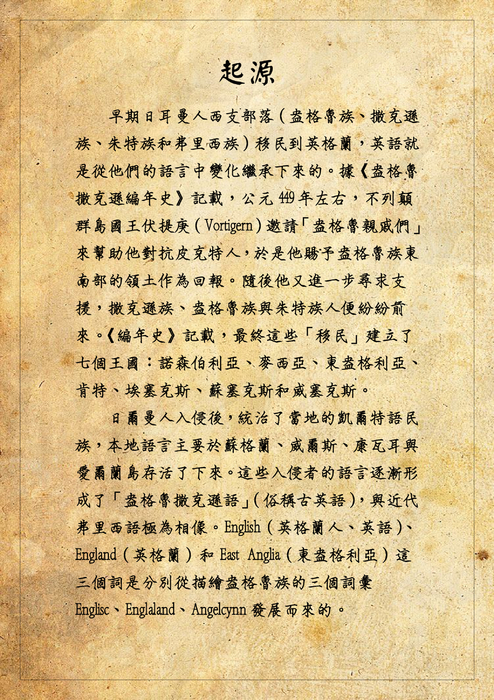 起源
早期日耳曼人西支部落（盎格魯族、撒克遜
族、朱特族和弗里西族）移民到英格蘭，英語就
是從他們的語言中變化繼承下來的。據《盎格魯
撒克遜編年史》記載，公元 449 年左右，不列顛
群島國王伏提庚（Vortigern）邀請「盎格魯親戚們」
來幫助他對抗皮克特人，於是他賜予盎格魯族東
南部的領土作為回報。隨後他又進一步尋求支
援，撒克遜族、盎格魯族與朱特族人便紛紛前
來。《編年史》記載，最終這些「移民」建立了
七個王國：諾森伯利亞、麥西亞、東盎格利亞、
肯特、埃塞克斯、蘇塞克斯和威塞克斯。
日爾曼人入侵後，統治了當地的凱爾特語民
族，本地語言主要於蘇格蘭、威爾斯、康瓦耳與
愛爾蘭島存活了下來。這些入侵者的語言逐漸形
成了「盎格魯撒克遜語」（俗稱古英語），與近代
弗里西語極為相像。English（英格蘭人、英語）、
England（英格蘭）和 East Anglia（東盎格利亞）這
三個詞是分別從描繪盎格魯族的三個詞彙
Englisc、Englaland、Angelcynn 發展而來的。